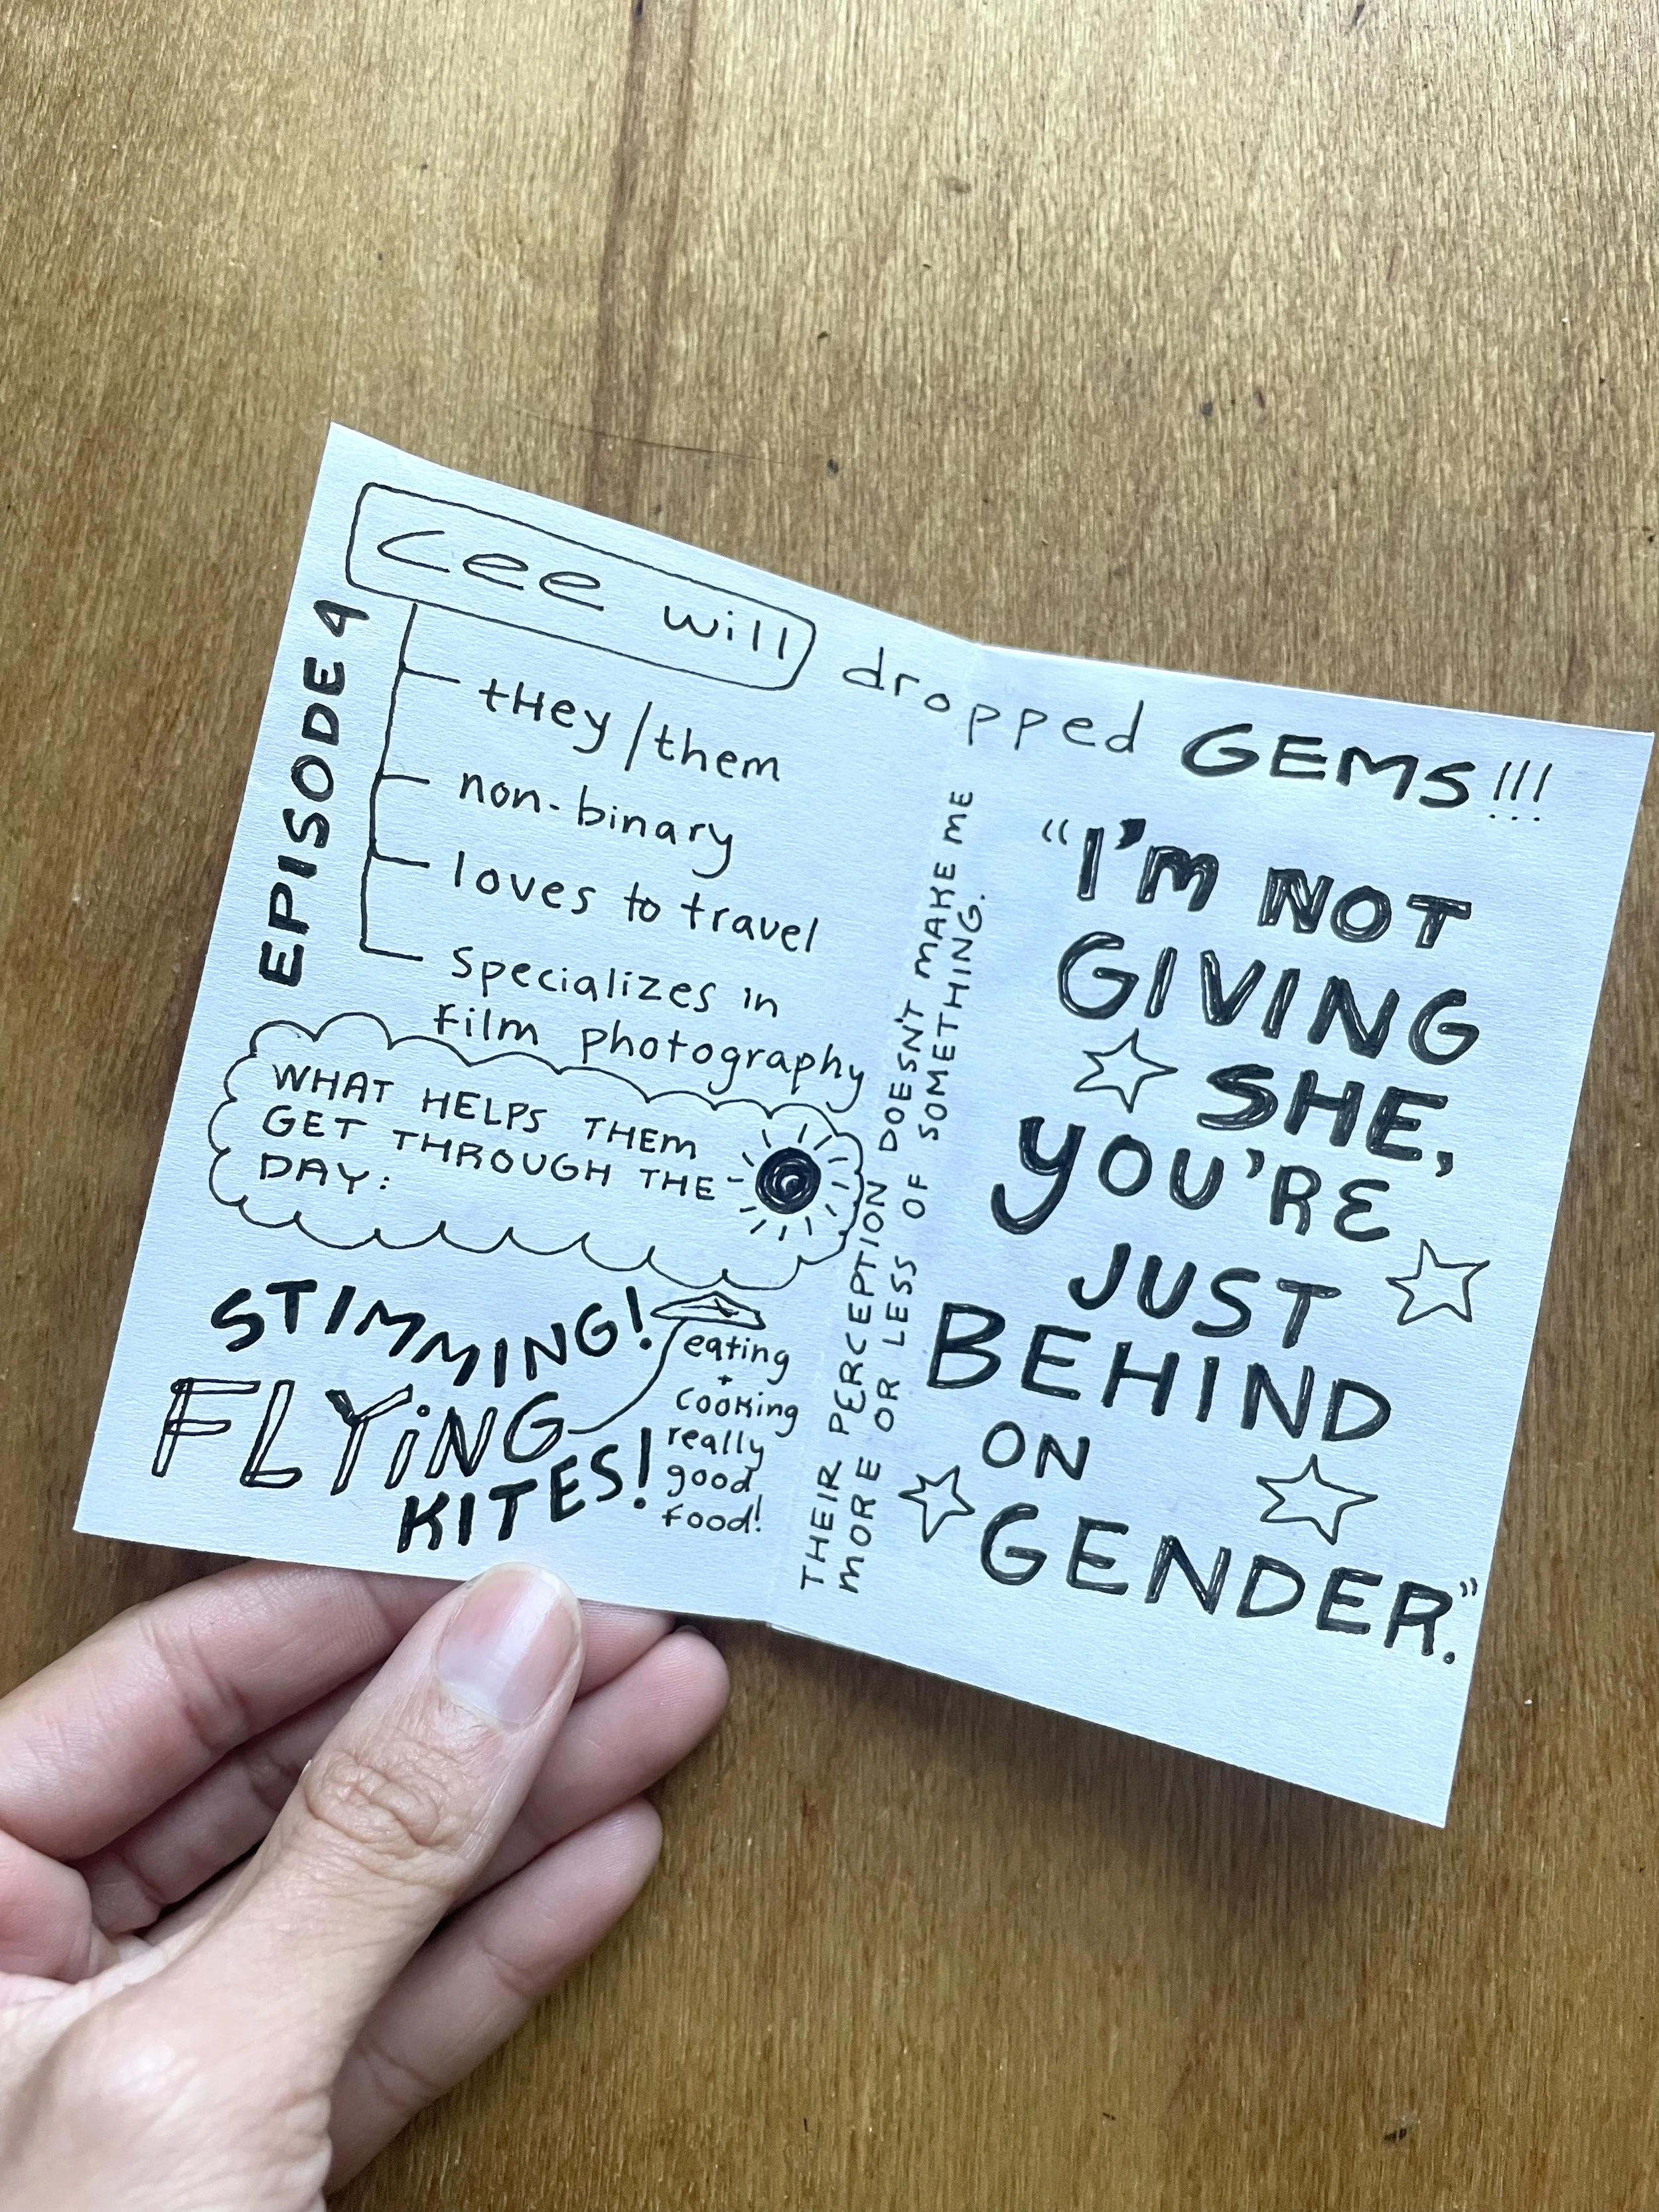 EPISODE 4
Cee will dropped GEMS!!!
they/them
non-binary
loves to travel
specializes in
film photography
WHAT HELPS THEM
GET THROUGH THE
DAY:
STIMMING!
FLYING
KITES!
eating
+
cooking
really
good
food!
THEIR PERCEPTION DOESN'T MAKE ME
MORE OR LESS OF SOMETHING.
"I'M NOT
GIVING
SHE,
YOU'RE
JUST
BEHIND
ON
GENDER."